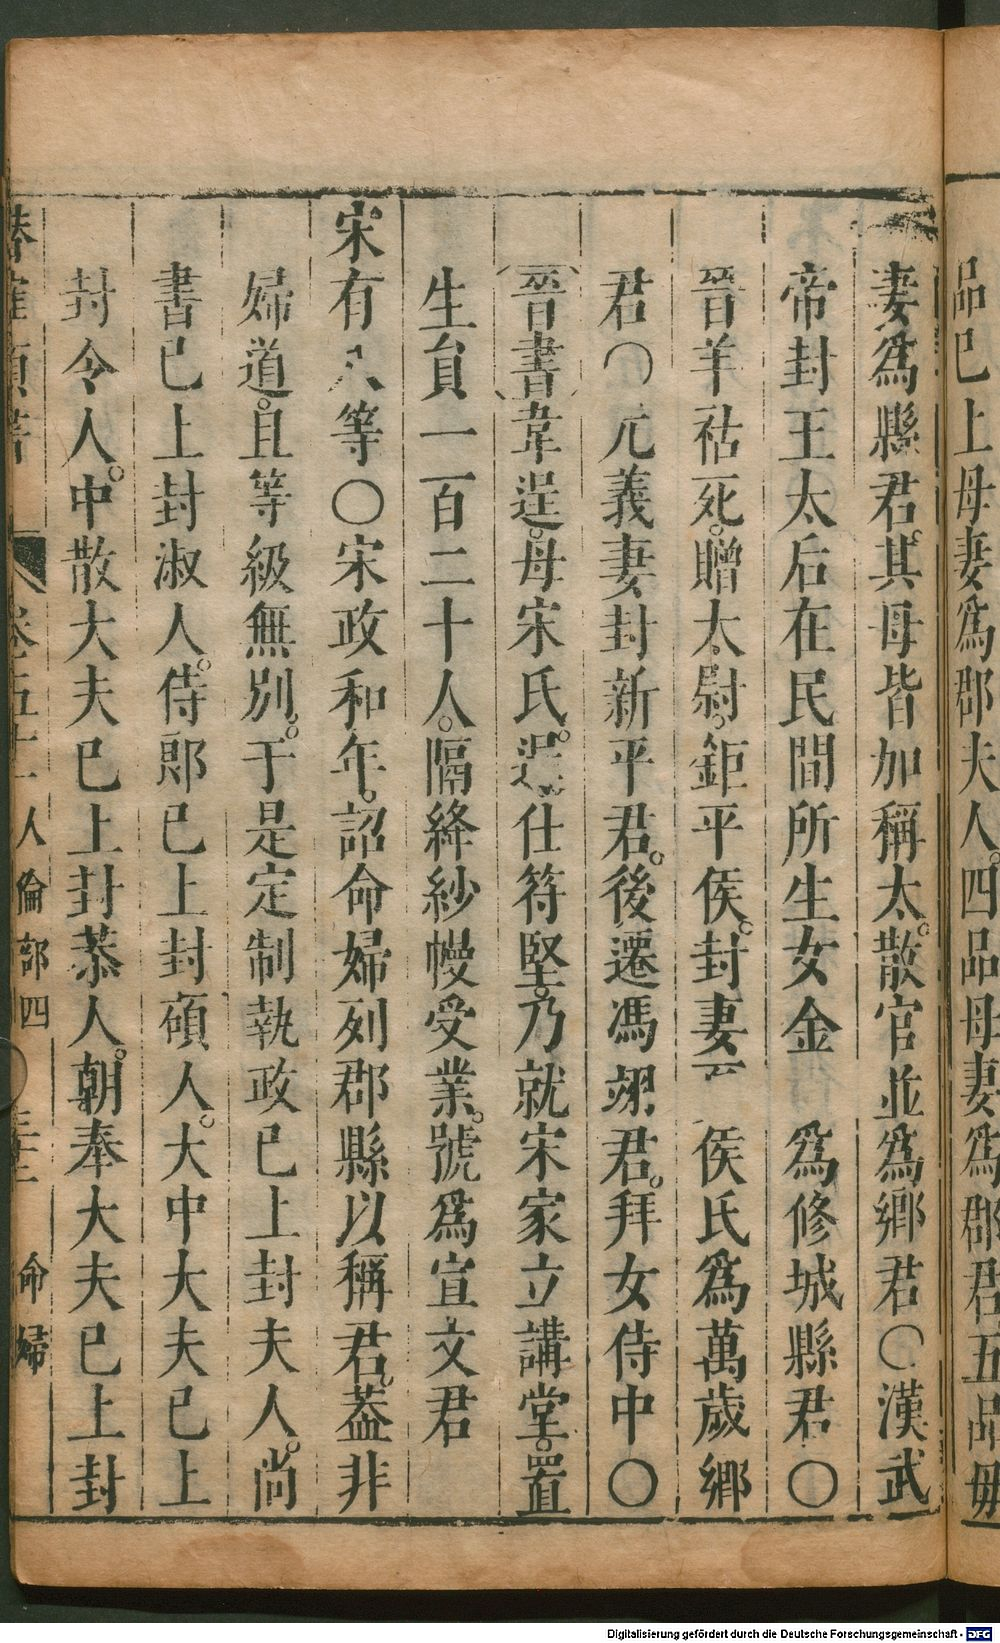 品已上母妻爲郡夫人。四品母妻爲郡君五品母
妻爲縣君。其母皆加稱太。散官並爲鄉君〇漢武
帝封王太后在民間所生女金 爲修城縣君〇
晉羊祜死。贈太尉。鉅平侯。封妻 侯氏爲萬歲鄉
君〇元義妻封新平君。後遷馮翊君。拜女侍中〇
晉書韋逞。母宋氏。逞仕符堅。乃就宋家立講堂。置
生員一百二十人。隔絳紗幔受業。號爲宣文君
宋有八等〇宋政和年。詔命婦列郡縣以稱君。葢非
婦道。且等級無別。于是定制執政已上封夫人。尚
書已上封淑人。侍郎已上封碩人。大中大夫已上
封令人。中散大夫已上封恭人。朝奉大夫已上封
卷五十一 人倫部四 命婦
Digitalisierung gefördert durch die Deutsche Forschungsgemeinschaft - DFG